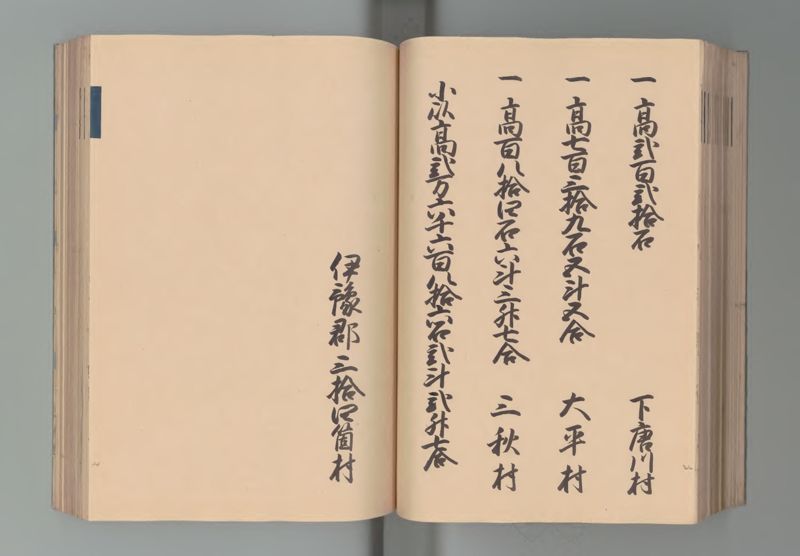 一 高弐百弐拾石 下唐川村
一 高七百三拾九石五斗五合 大平村
一 高百八拾四石六斗三升七合 三秋村
小以高弐万六千六百八拾六石弐斗弐升七合
伊豫郡 三拾四箇村